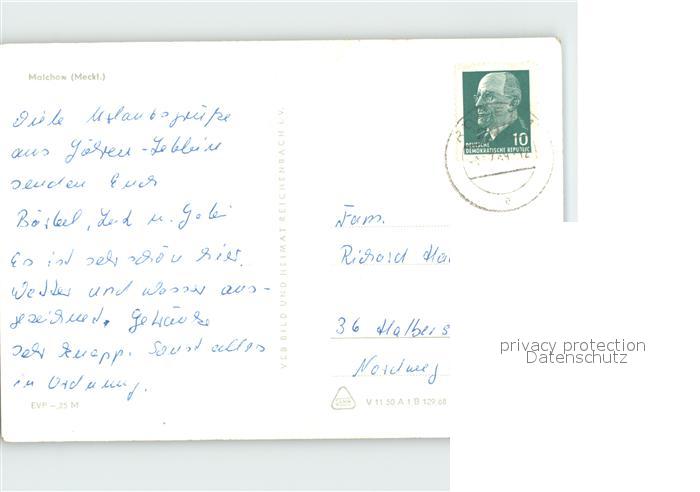 Malchow (Meckl.)
Viele Urlaubsgrüße
aus Göhren-Lebbin
senden Euch
Bärbel, u. Gabi
Es ist sehr schön hier.
Wetter und Wasser aus-
gezeichnet. Getränke
sehr knapp. Sonst alles
in Ordnung.
EVP –,25 M
VEB BILD UND HEIMAT REICHENBACH i. V.
10
DEUTSCHE
DEMOKRATISCHE REPUBLIK
e
Fam.
Richard
36 Halbers
Nordweg
V 11 50 A 1 B 129/68
privacy protection
Datenschutz